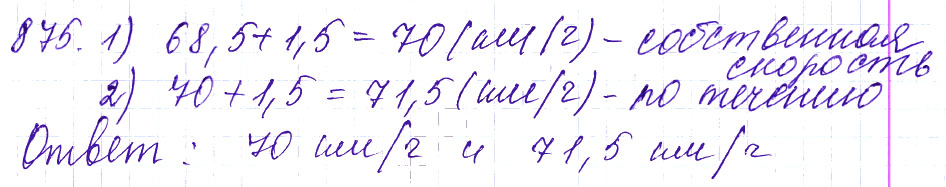 875. 1) 68,5+1,5 = 70 (км/ч) – собственная
скорость
2) 70+1,5 = 71,5 (км/ч) – по течению
Ответ: 70 км/ч и 71,5 км/ч